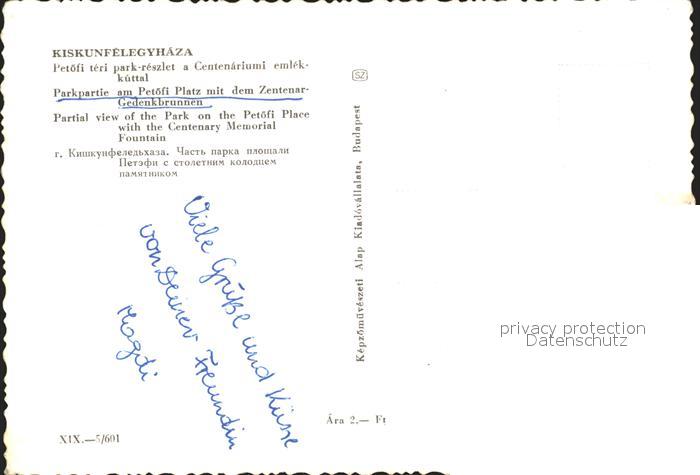 KISKUNFÉLEGYHÁZA
Petőfi téri park-részlet a Centenáriumi emlék-
kúttal
Parkpartie am Petőfi Platz mit dem Zentenar-
Gedenkbrunnen
Partial view of the Park on the Petőfi Place
with the Centenary Memorial
Fountain
г. Кишкунфеледьхаза. Часть парка площади
Петэфи с столетним колодцем
памятником
Viele Grüße und Küsse
von Deiner Freundin
Magdi
XIX.—5/601
SZ
Képzőművészeti Alap Kiadóvállalata, Budapest
Ára 2.— Ft
privacy protection
Datenschutz